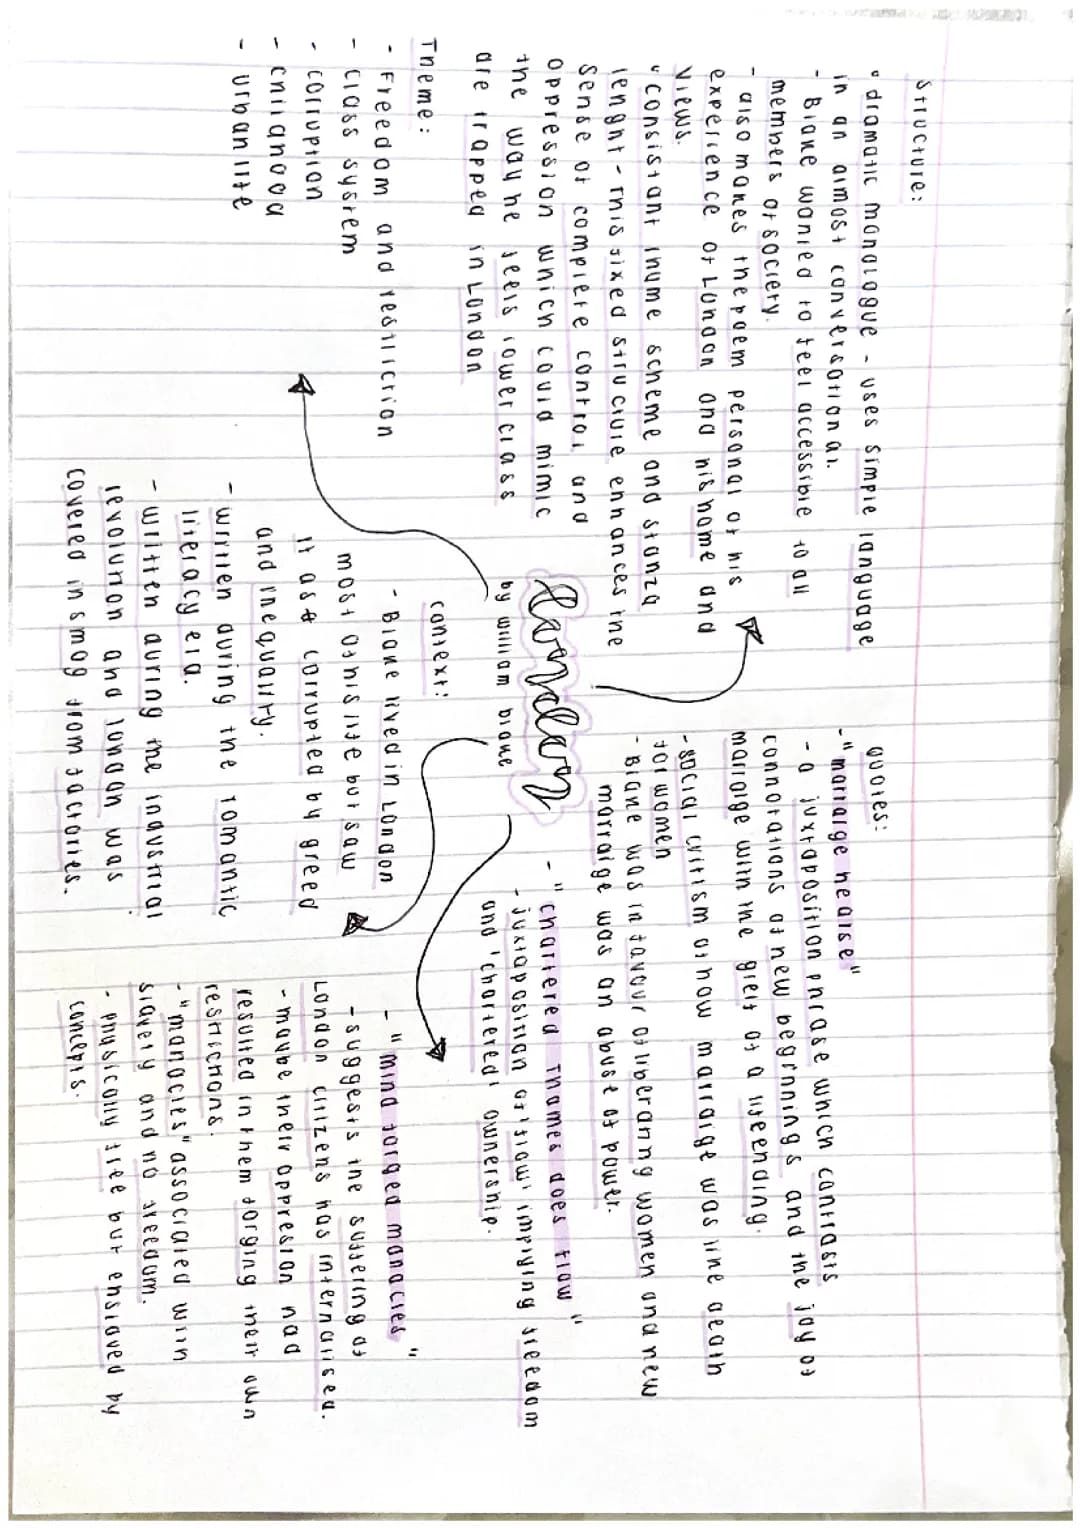 structure:
" dramatic monologue - uses simple language
in an almost conversational.
- Blake wanted to feel accessible to all
members of society.
- also makes the poem personal of his
experience of London and his home and
views.
" consistant rhyme scheme and stanza
lenght - this fixed structure enhances the
sense of complete control and
oppression which could mimic
the way he feels lower class
are trapped in London
Theme:
- Freedom and restriction
- class system
- corruption
- childhood
- urban life
London
by william blake
context:
- Blake lived in London
most of his life but saw
it as a corrupted by greed
and inequality.
- written during the romantic
literacy era.
- written during the industrial
revolution and london was
covered in smog from factories.
quotes:
- " marraige hearse "
- a juxtaposition phrase which contrasts
connotations of new beginnings and the joy of
marraige with the grief of a life ending.
- social critism of how marraige was like death
for women
- Blake was in favour of liberating women and new
marraige was an abuse of power.
- " chartered Thames does flow "
- juxtaposition of 'flow' implying freedom
and 'chartered' ownership.
- " mind forged manacles "
- suggests the suffering of
London citizens has internalised.
- maybe their oppresion had
resulted in them forging their own
restrictions.
- "manacles" associated with
slavery and no freedum.
- physically free but enslaved by
concepts.